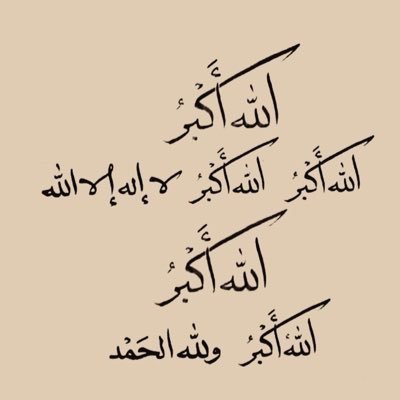 الله أَكْبرُ
الله أَكْبرُ الله أَكْبرُ لا إله إلا الله
الله أَكْبرُ
اللهُ أَكْبرُ ولله الحَمْد